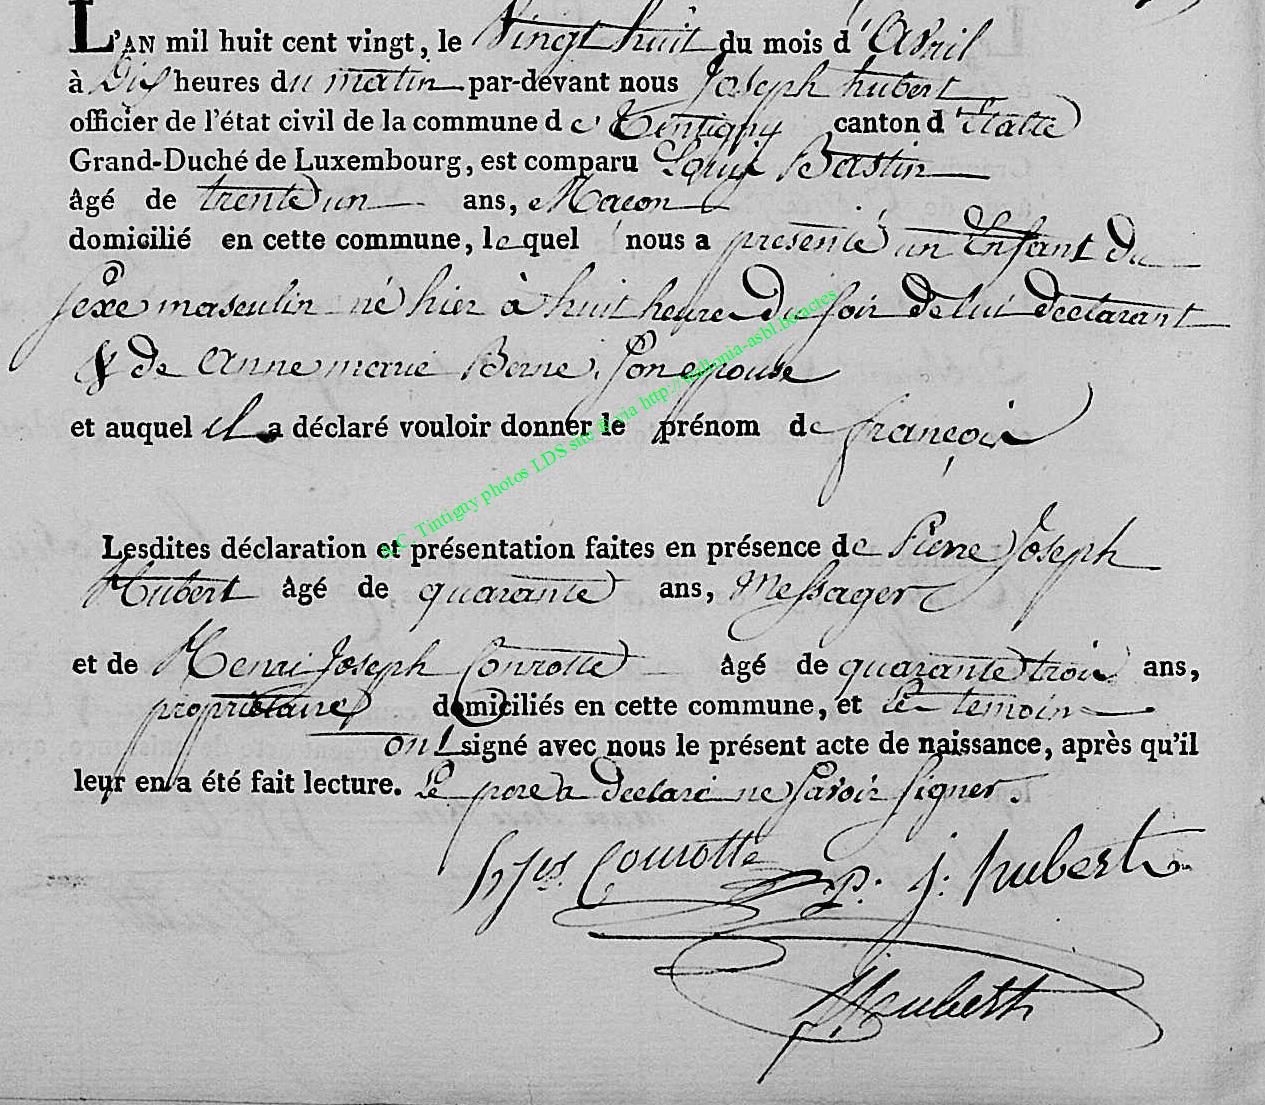 L'AN mil huit cent vingt, le Vingt huit du mois d'Avril
à Dix heures du matin par-devant nous Joseph hubert
officier de l'état civil de la commune de Tintigny canton d'Etalle
Grand-Duché de Luxembourg, est comparu Louis Bastin
âgé de trente un ans, Macon
domicilié en cette commune, lequel nous a présenté un Enfant du
sexe masculin né hier à huit heure du soir de lui declarant
& de Anne marie Borne, Son epouse
et auquel il a déclaré vouloir donner le prénom de françois
A.C. Tintigny photos LDS site via http://wallonia-asbl.be/actes
Lesdites déclaration et présentation faites en présence de Pierre Joseph
Hubert âgé de quarante ans, Messager
et de Henri Joseph Courotte âgé de quarante trois ans,
proprietaire domiciliés en cette commune, et les temoins
ont signé avec nous le présent acte de naissance, après qu'il
leur en a été fait lecture. Le pere a declaré ne savoir signer.
h jos. Courotte P. j. hubert
J Hubert